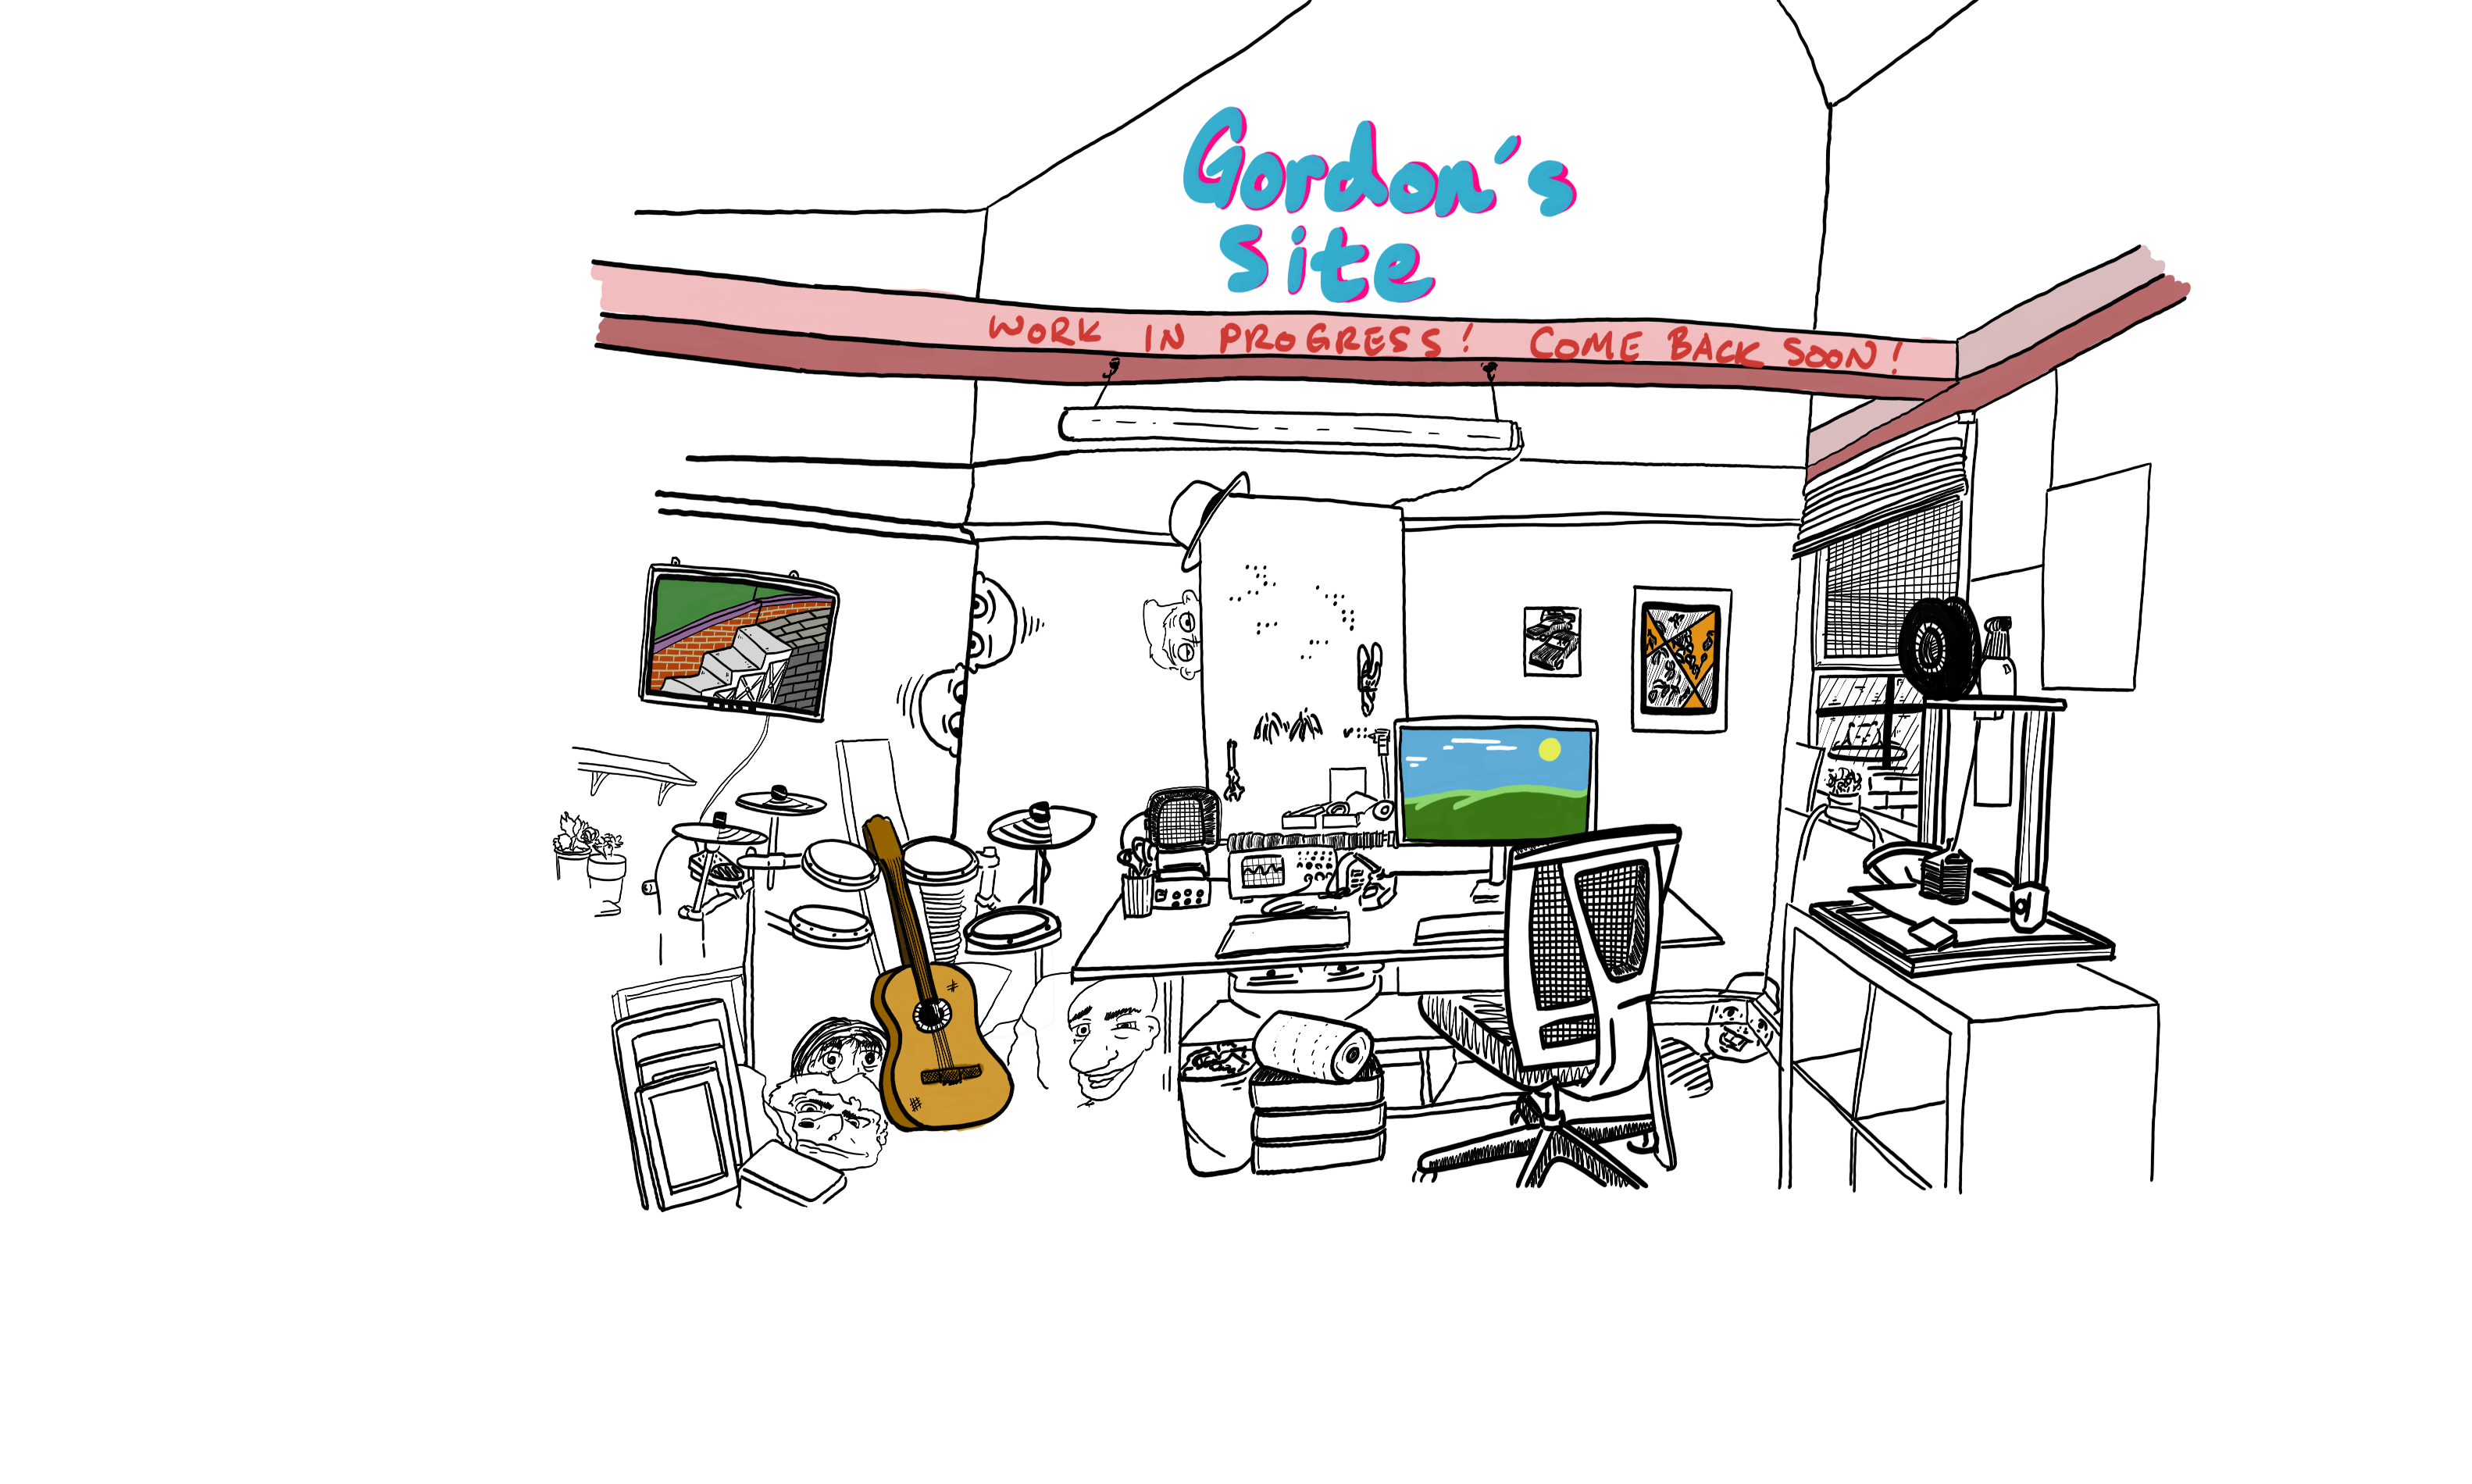 Gordon's
Site
WORK IN PROGRESS! COME BACK SOON!